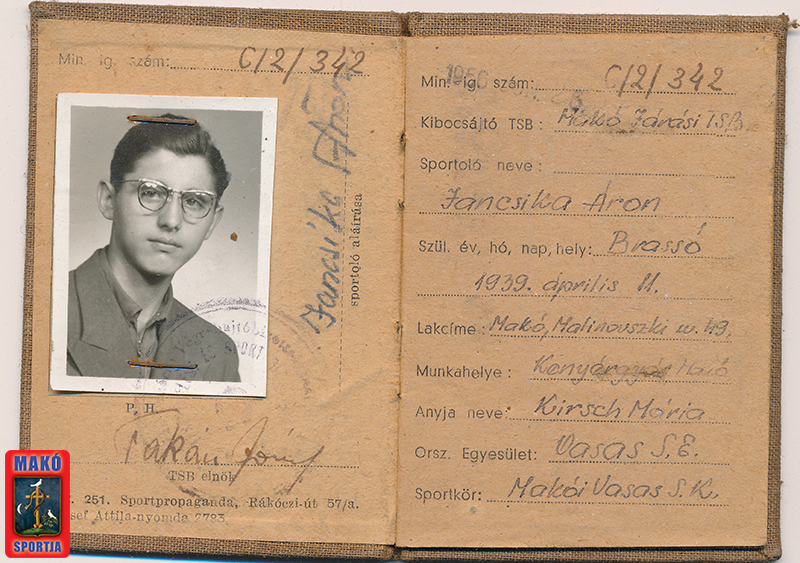 Min. ig. szám: C/2/342
Jancsika Áron
sportoló aláírása
P. H.
Takács József
TSB elnök
251. Sportpropaganda, Rákóczi-út 57/a.
Attila-nyomda 2783
MAKÓ
SPORTJA
1956
Min. ig. szám: C/2/342
Kibocsájtó TSB: Makó Járási TSB.
Sportoló neve:
Jancsika Áron
Szül. év, hó, nap, hely: Brassó
1939. április 11.
Lakcíme: Makó, Malinovszki u. 49.
Munkahelye: Makó
Anyja neve: Kirsch Mária
Orsz. Egyesület: Vasas S.E.
Sportkör: Makói Vasas S.K.